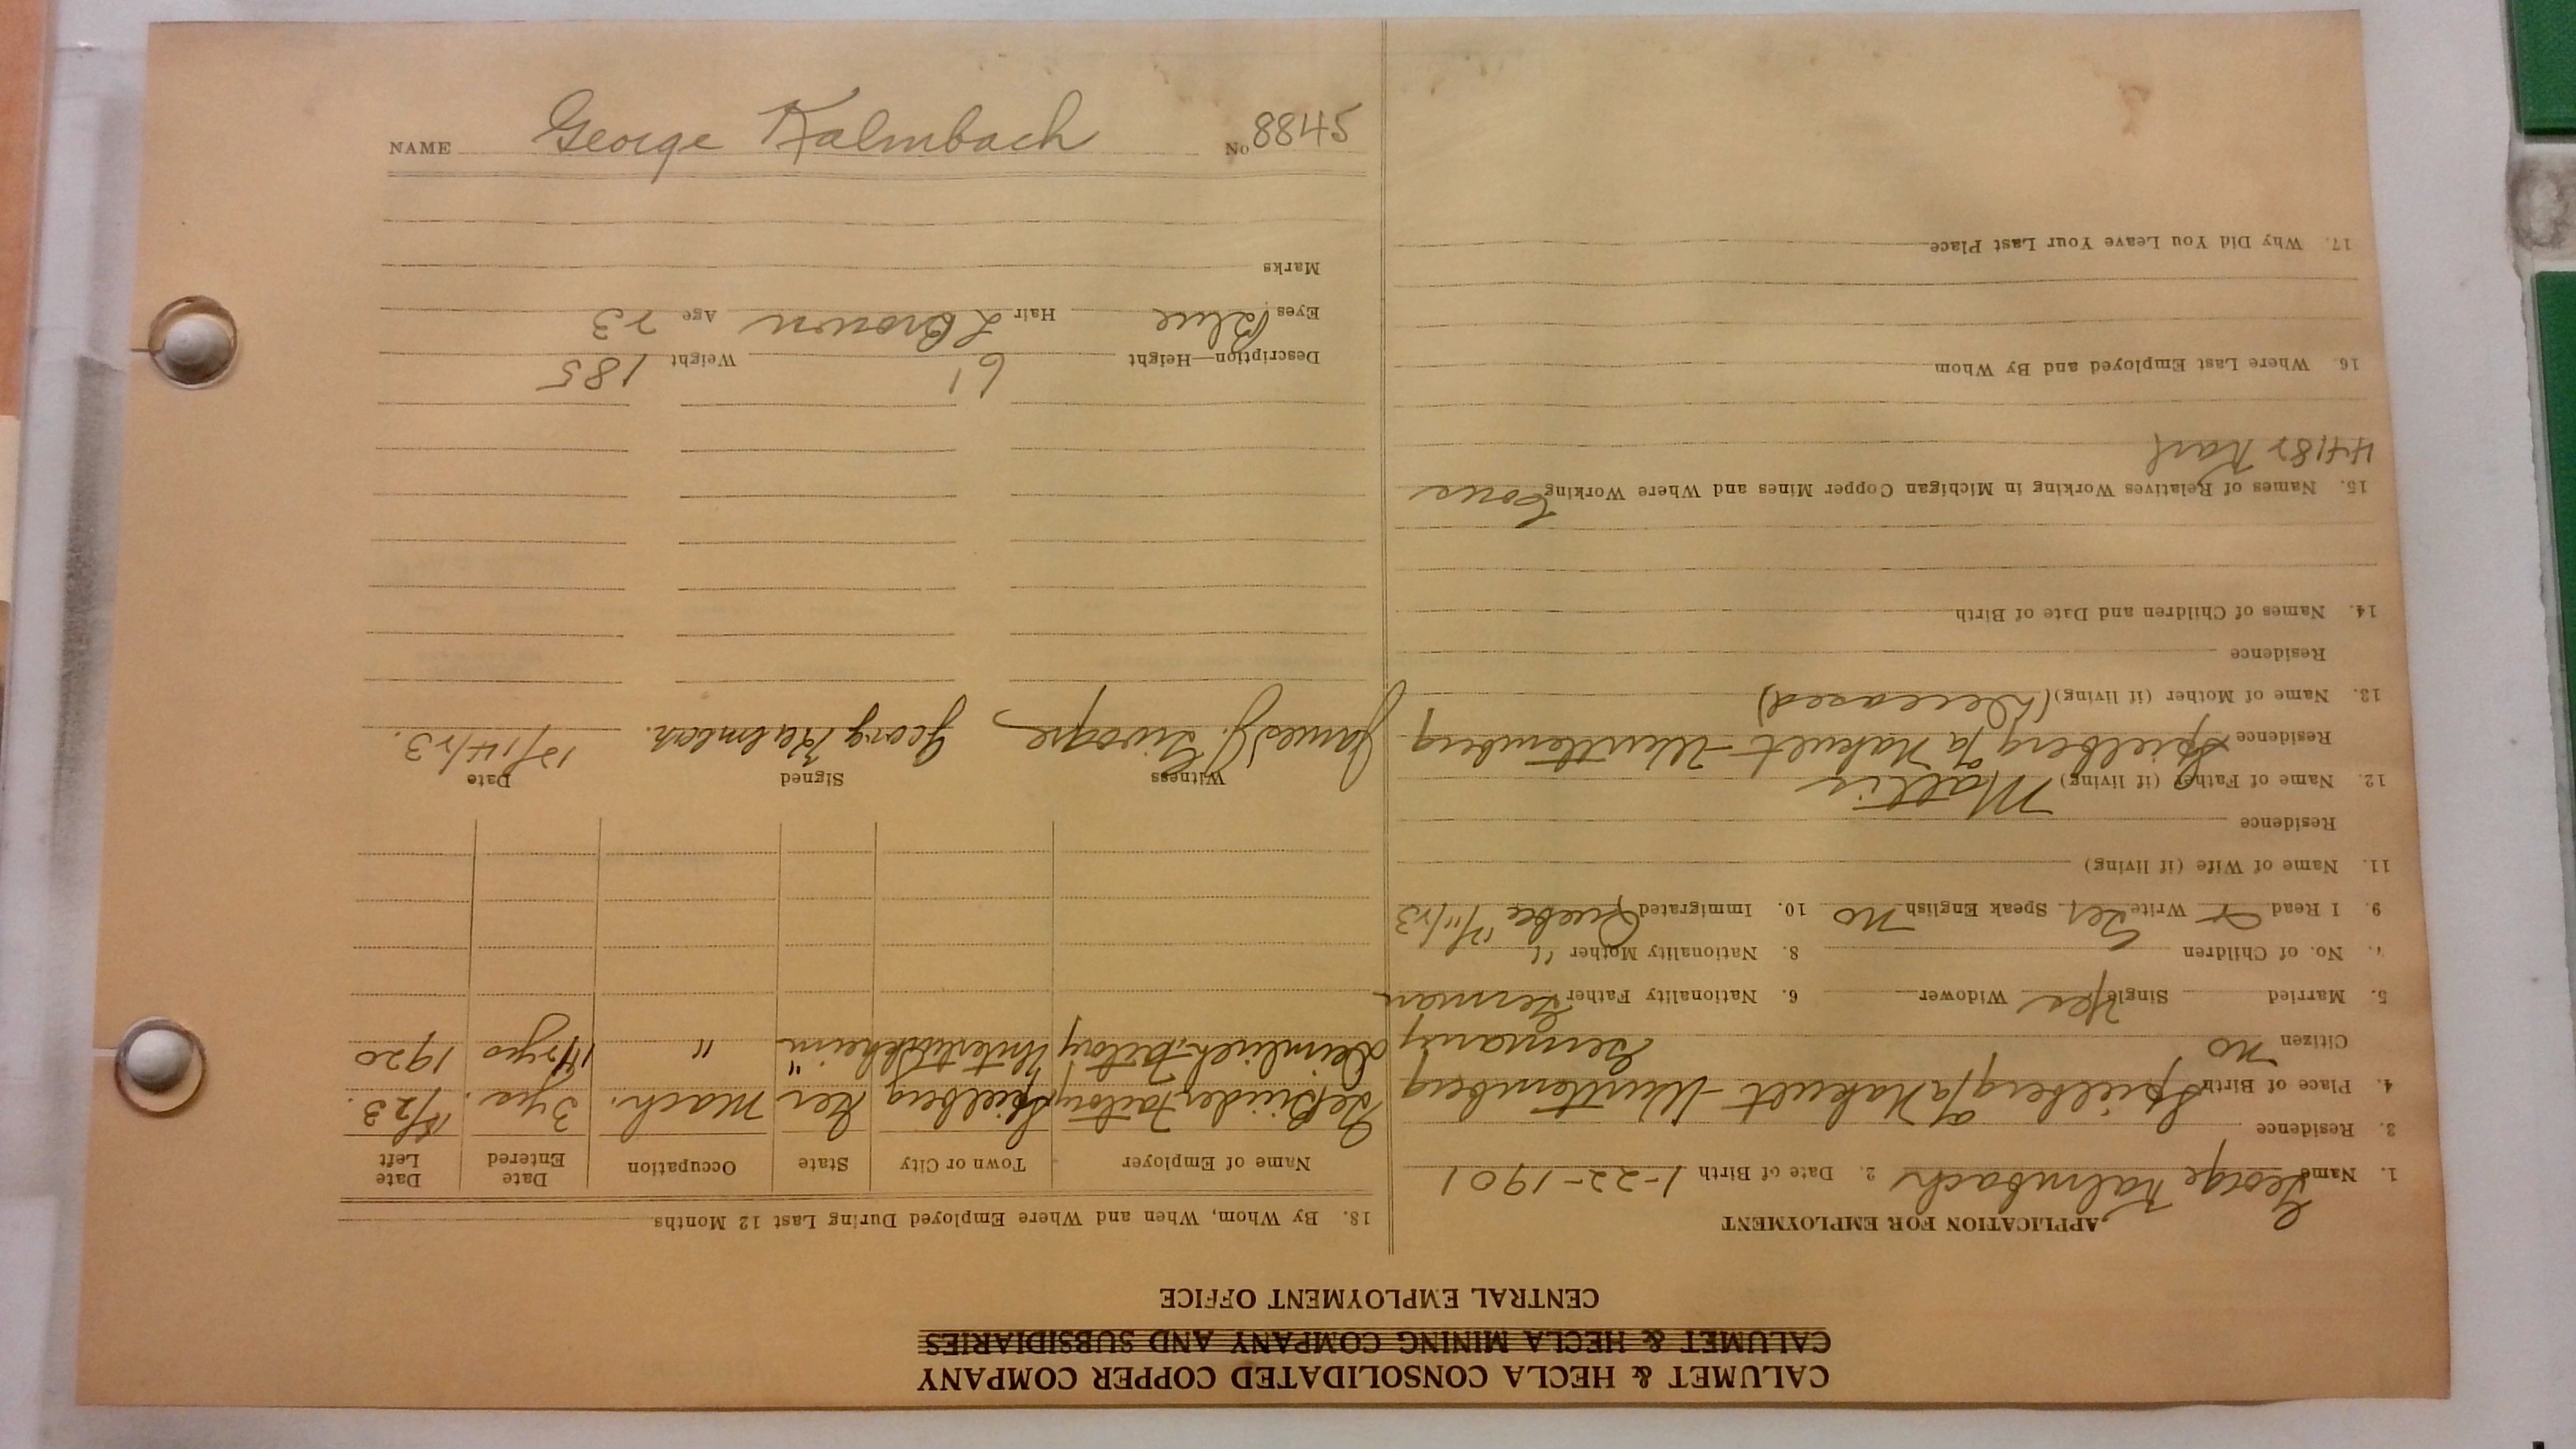 CALUMET & HECLA CONSOLIDATED COPPER COMPANY
CALUMET & HECLA MINING COMPANY AND SUBSIDIARIES
CENTRAL EMPLOYMENT OFFICE
APPLICATION FOR EMPLOYMENT
1. Name George Kalmbach 2. Date of Birth 1-22-1901
3. Residence
4. Place of Birth Spielberg Wurttemberg
Citizen no Germany
5. Married Single Yes Widower 6. Nationality Father German
7. No. of Children 8. Nationality Mother "
9. I Read Write Ger Speak English no 10. Immigrated
11. Name of Wife (if living)
Residence
12. Name of Father (if living)
Residence Spielberg Wurttemberg
13. Name of Mother (if living) (Deceased)
Residence
14. Names of Children and Date of Birth
15. Names of Relatives Working in Michigan Copper Mines and Where Working
Karl
16. Where Last Employed and By Whom
17. Why Did You Leave Your Last Place
18. By Whom, When and Where Employed During Last 12 Months
Name of Employer Town or City State Occupation Date Entered Date Left
Factory Spielberg Ger Mach. 3 yrs.
Factory " " 1920
Witness Signed Date
James Georg Kalmbach. 12/14/23.
Description—Height 6' Weight 185
Eyes Blue Hair L Brown Age 23
Marks
NAME George Kalmbach No 8845